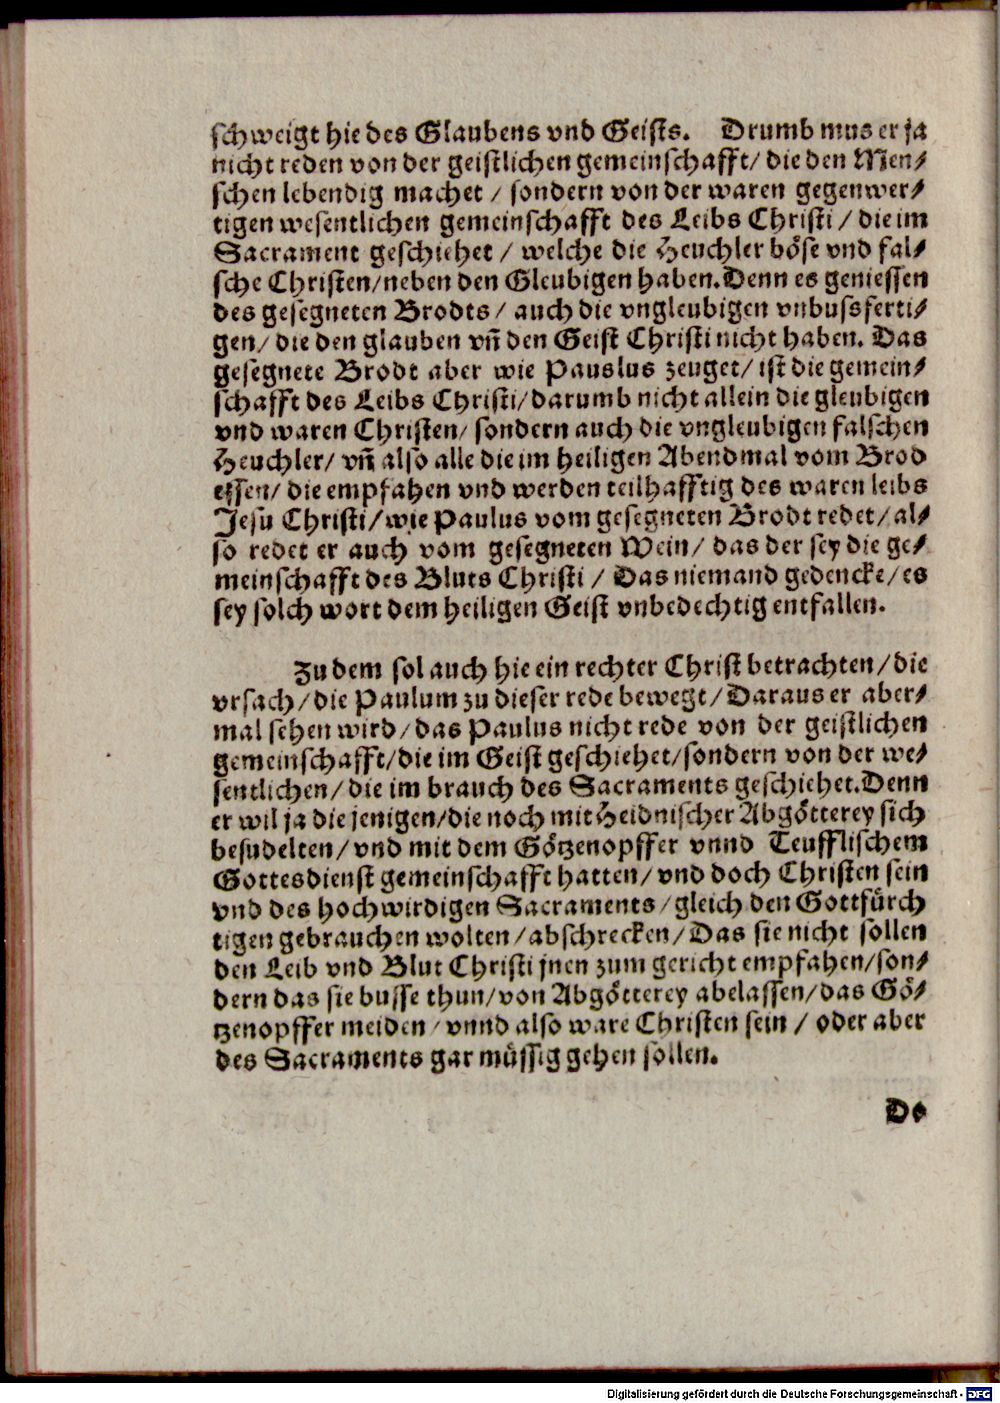 schweigt hie des Glaubens vnd Geists. Drumb mus er ja
nicht reden von der geistlichen gemeinschafft/ die den Men-
schen lebendig machet / sondern von der waren gegenwer-
tigen wesentlichen gemeinschafft des Leibs Christi / die im
Sacrament geschiehet / welche die Heuchler böse vnd fal-
sche Christen/neben den Gleubigen haben. Denn es geniessen
des gesegneten Brodts/ auch die vngleubigen vnbussferti-
gen/ die den glauben vn̄ den Geist Christi nicht haben. Das
gesegnete Brodt aber wie Pauslus zeuget/ ist die gemein-
schafft des Leibs Christi/darumb nicht allein die gleubigen
vnd waren Christen/ sondern auch die vngleubigen falschen
Heuchler/ vn̄ also alle die im heiligen Abendmal vom Brod
essen/ die empfahen vnd werden teilhafftig des waren leibs
Jesu Christi/wie Paulus vom gesegneten Brodt redet/ al-
so redet er auch vom gesegneten Wein/ das der sey die ge-
meinschafft des Bluts Christi / Das niemand gedencke/es
sey solch wort dem heiligen Geist vnbedechtig entfallen.
Zu dem sol auch hie ein rechter Christ betrachten/die
vrsach/die Paulum zu dieser rede bewegt/Daraus er aber-
mal sehen wird/das Paulus nicht rede von der geistlichen
gemeinschafft/die im Geist geschiehet/sondern von der we-
sentlichen/ die im brauch des Sacraments geschiehet. Denn
er wil ja die jenigen/die noch mit Heidnischer Abgötterey sich
besudelten/ vnd mit dem Götzenopffer vnnd Teufflischem
Gottesdienst gemeinschafft hatten/ vnd doch Christen sein
vnd des hochwirdigen Sacraments/gleich den Gottfürch
tigen gebrauchen wolten/abschrecken/Das sie nicht sollen
den Leib vnd Blut Christi jnen zum gericht empfahen/son-
dern das sie busse thun/von Abgötterey abelassen/das Gö-
tzenopffer meiden/ vnnd also ware Christen sein / oder aber
des Sacraments gar müssig gehen sollen.
De
Digitalisierung gefördert durch die Deutsche Forschungsgemeinschaft - DFG